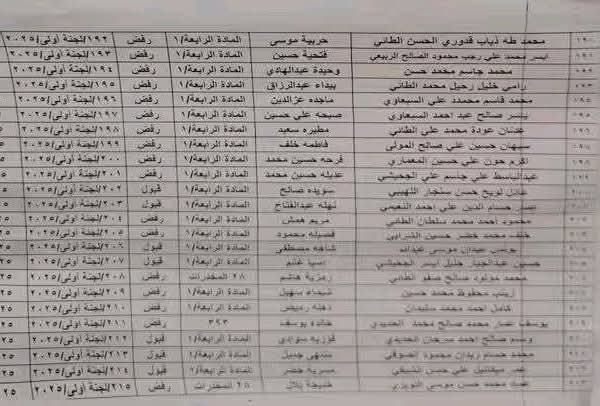 ١٩٠ محمد طه ذياب قدوري الحسن الطائي حربية موسى المادة الرابعة/١ رفض ١٩٢/لجنة أولى/٢٠٢٥
١٩١ ايسر محمد علي رجب محمود الصالح الربيعي فتحية حسين المادة الرابعة/١ رفض ١٩٣/لجنة أولى/٢٠٢٥
محمد جاسم محمد حسن وحيدة عبدالهادي المادة الرابعة/١ رفض ١٩٤/لجنة أولى/٢٠٢٥
١٩٣ رامي خليل رحيل محمد الطائي بيداء عبدالرزاق المادة الرابعة/١ رفض ١٩٥/لجنة أولى/٢٠٢٥
١٩٤ محمد قاسم محمدد علي السبعاوي ماجده عزالدين المادة الرابعة/١ رفض ١٩٦/لجنة أولى/٢٠٢٥
١٩٥ ياسر صالح عبد احمد السبعاوي صبحه علي حسين المادة الرابعة/١ رفض ١٩٧/لجنة أولى/٢٠٢٥
١٩٦ عدنان عودة محمد علي الطائي مطيره سعيد المادة الرابعة/١ رفض ١٩٨/لجنة أولى/٢٠٢٥
سبهان حسين علي صالح المولى فاطمه خلف المادة الرابعة/١ رفض ١٩٩/لجنة أولى/٢٠٢٥
١٩٨ اكرم حون علي حسين المعماري فرحه حسين محمد المادة الرابعة/١ رفض ٢٠٠/لجنة أولى/٢٠٢٥
عبدالباسط علي جاسم علي الجحيشي عديله حسين محمد المادة الرابعة/١ رفض ٢٠١/لجنة أولى/٢٠٢٥
عادل لويح حسن سنجار اللهيبي سويده صالح المادة الرابعة/١ قبول ٢٠٢/لجنة أولى/٢٠٢٥
حسام الدين علي احمد النعيمي نهله عبدالفتاح المادة الرابعة/١ قبول ٢٠٣/لجنة أولى/٢٠٢٥
محمود احمد محمد سلطان الطائي مريم المادة الرابعة/١ رفض ٢٠٤/لجنة أولى/٢٠٢٥
خلف محمد خضر حسين فضيله محمود المادة الرابعة/١ رفض ٢٠٥/لجنة أولى/٢٠٢٥
يونس عبدان موسى عبدالله شاهه مصطفى المادة الرابعة/١ قبول ٢٠٦/لجنة أولى/٢٠٢٥
حسين عبدالجبار خليل الجحيشي اسيا غانم المادة الرابعة/١ قبول ٢٠٧/لجنة أولى/٢٠٢٥
محمد مولود صالح صفو الطائي رمزية هاشم ٢٨ المخدرات رفض ٢٠٨/لجنة أولى/٢٠٢٥
محفوظ محمد حسين شيماء سهيل المادة الرابعة/١ رفض ٢٠٩/لجنة أولى/٢٠٢٥
كامل احمد محمد سليمان دهله رميض المادة الرابعة/١ رفض ٢١٠/لجنة أولى/٢٠٢٥
يوسف عمار محمد صالح محمد الحديدي خالده يوسف ٣٩٣ رفض ٢١١/لجنة أولى/٢٠٢٥
وسام صالح احمد سرحان الحديدي فوزيه سوادي المادة الرابعة/١ قبول ٢١٢/لجنة أولى/٢٠٢٥
محمد حسام زيدان محمود الصوفي جميل المادة الرابعة/١ قبول ٢١٣/لجنة أولى/٢٠٢٥
ميكائيل علي حسن خضر المادة الرابعة/١ قبول ٢١٤/لجنة أولى/٢٠٢٥
محمد حسن موسى خديجة بلال ٢٨ المخدرات رفض ٢١٥/لجنة أولى/٢٠٢٥